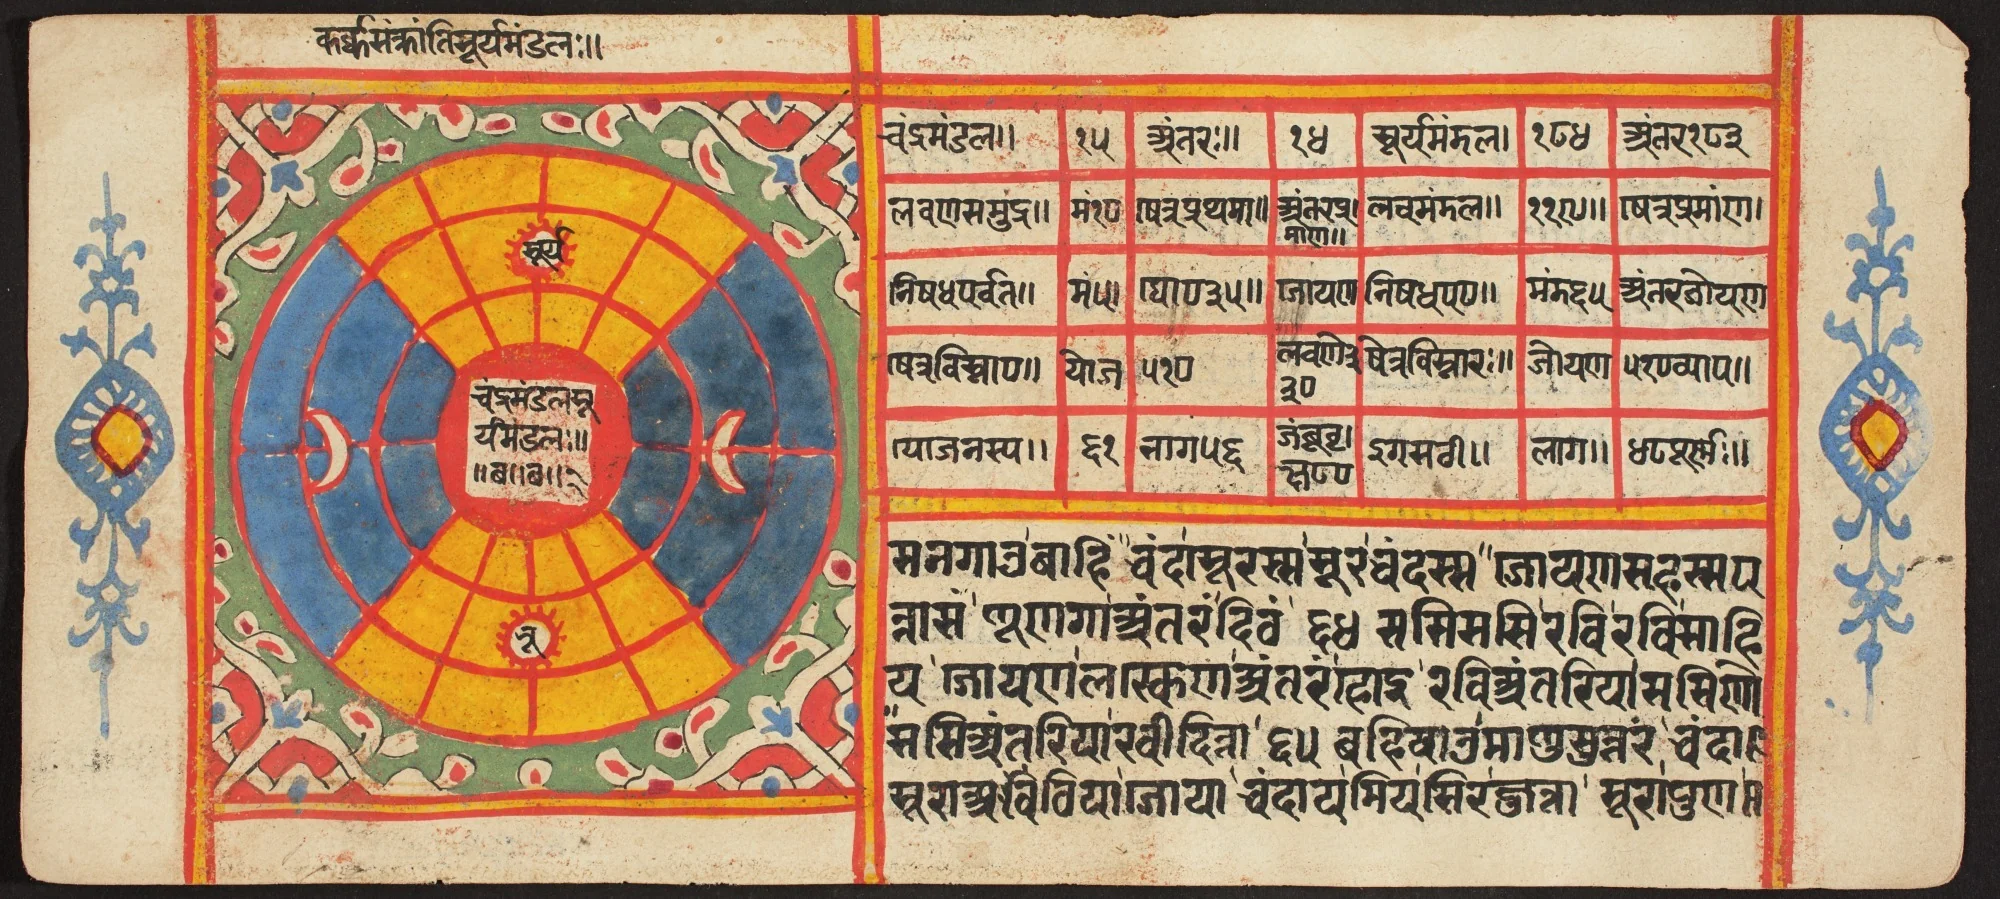 कर्क्कसंक्रांतिसूर्यमंडलः॥
सूर्य
चंद्रमंडलसू
र्यमंडलः॥
॥ब॥ब॥
चंद्रमंडल॥ १५ अंतरः॥ १४ सूर्यमंडल। १८४ अंतर१८३
लवणसमुद्र॥ मं१० षेत्रप्रथमा॥ अंतरप्र।
माण॥
लवमंडल॥ ११९॥ षेत्रप्रमांण।
निषधपर्वत॥ मं५॥ जोयण निषधप० मं६५ अंतरबीयण
षेत्रविस्ता०॥ योज ५१० लवणे३
३०
षेत्रविस्तारः॥ जोयण ५१०
योजनस्य॥ ६१ भाग५६ जंबूद्वी।
१८०
इगसठी॥ भाग॥ ४८
मनगाउबाहिं चंदासूरस्ससूरचंदस्स जोयणसहस्सप
न्नासं णूणगाअंतरंदिवं ६४ ससिससिरविरविसाहि
य जोयणलस्केणअंतरंहोइ रविअंतरियाससिणो
ससिअंतरियारवीदित्ता ६५ बहियाउमाणुसुत्तरं चंदा
सूराअवठियाजोया चंदायमियसिरजुत्ता सूरापुण